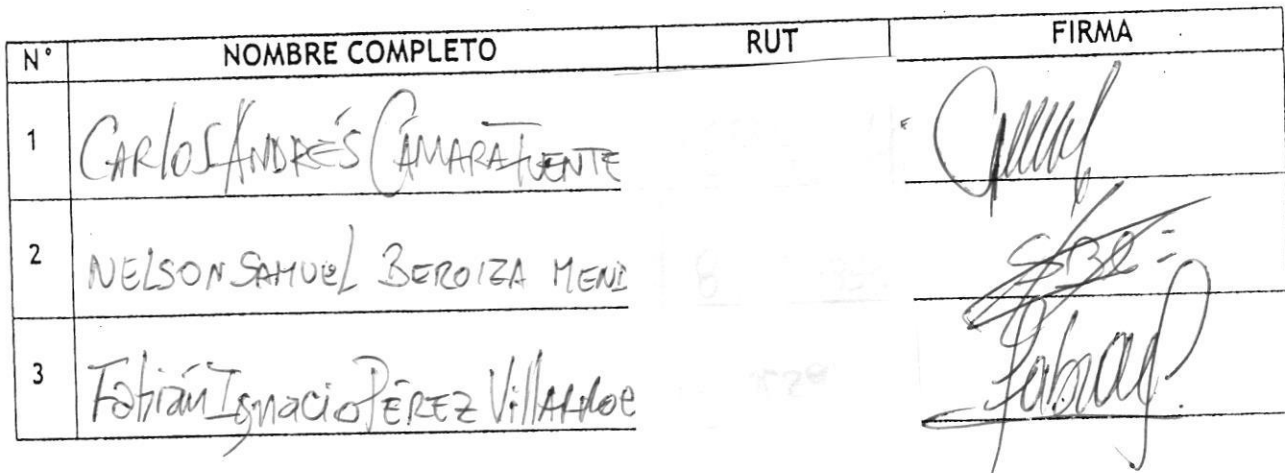 N° NOMBRE COMPLETO RUT FIRMA
1 CARLOS ANDRÉS CÁMARA FUENTE
2 NELSON SAMUEL BEROIZA MEND
3 Fabián Ignacio PÉREZ